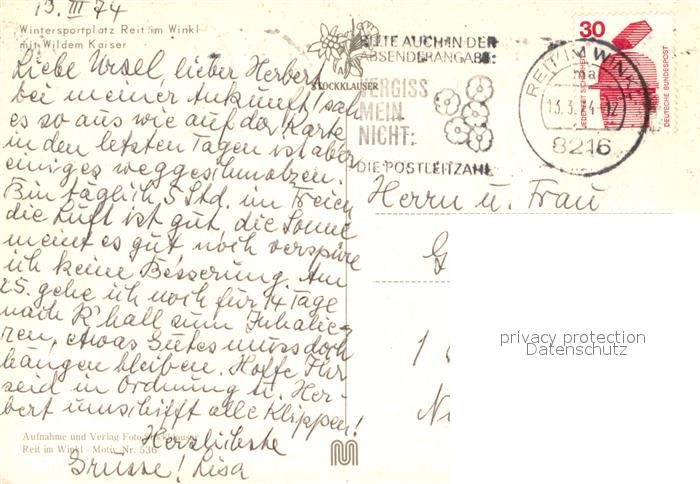 13. III 74
Wintersportplatz Reit im Winkl
mit Wildem Kaiser
Liebe Ursel, lieber Herbert,
bei meiner Ankunft sah
es so aus wie auf der Karte
in den letzten Tagen ist aber
einiges weggeschmolzen.
Bin täglich 5 Std. im Freien
die Luft ist gut, die Sonne
meint es gut noch verspüre
ich keine Besserung. Am
25. gehe ich noch für 14 Tage
nach R'hall zum Inhalie-
ren, etwas Gutes muss doch
hängen bleiben. Hoffe Ihr
seid in Ordnung u. Her-
bert umschifft alle Klippen!
Herzlichste
Grüsse! Lisa
Aufnahme und Verlag Foto Stocklauser
Reit im Winkl - Motiv Nr. 536
STOCKLAUSER
BITTE AUCH IN DER
ABSENDERANGABE:
VERGISS
MEIN
NICHT:
DIE POSTLEITZAHL
REIT IM WINKL
ma
13.3.74-12
8216
30
JEDERZEIT SICHERHEIT
DEUTSCHE BUNDESPOST
Herrn u. Frau
G
1
N
privacy protection
Datenschutz